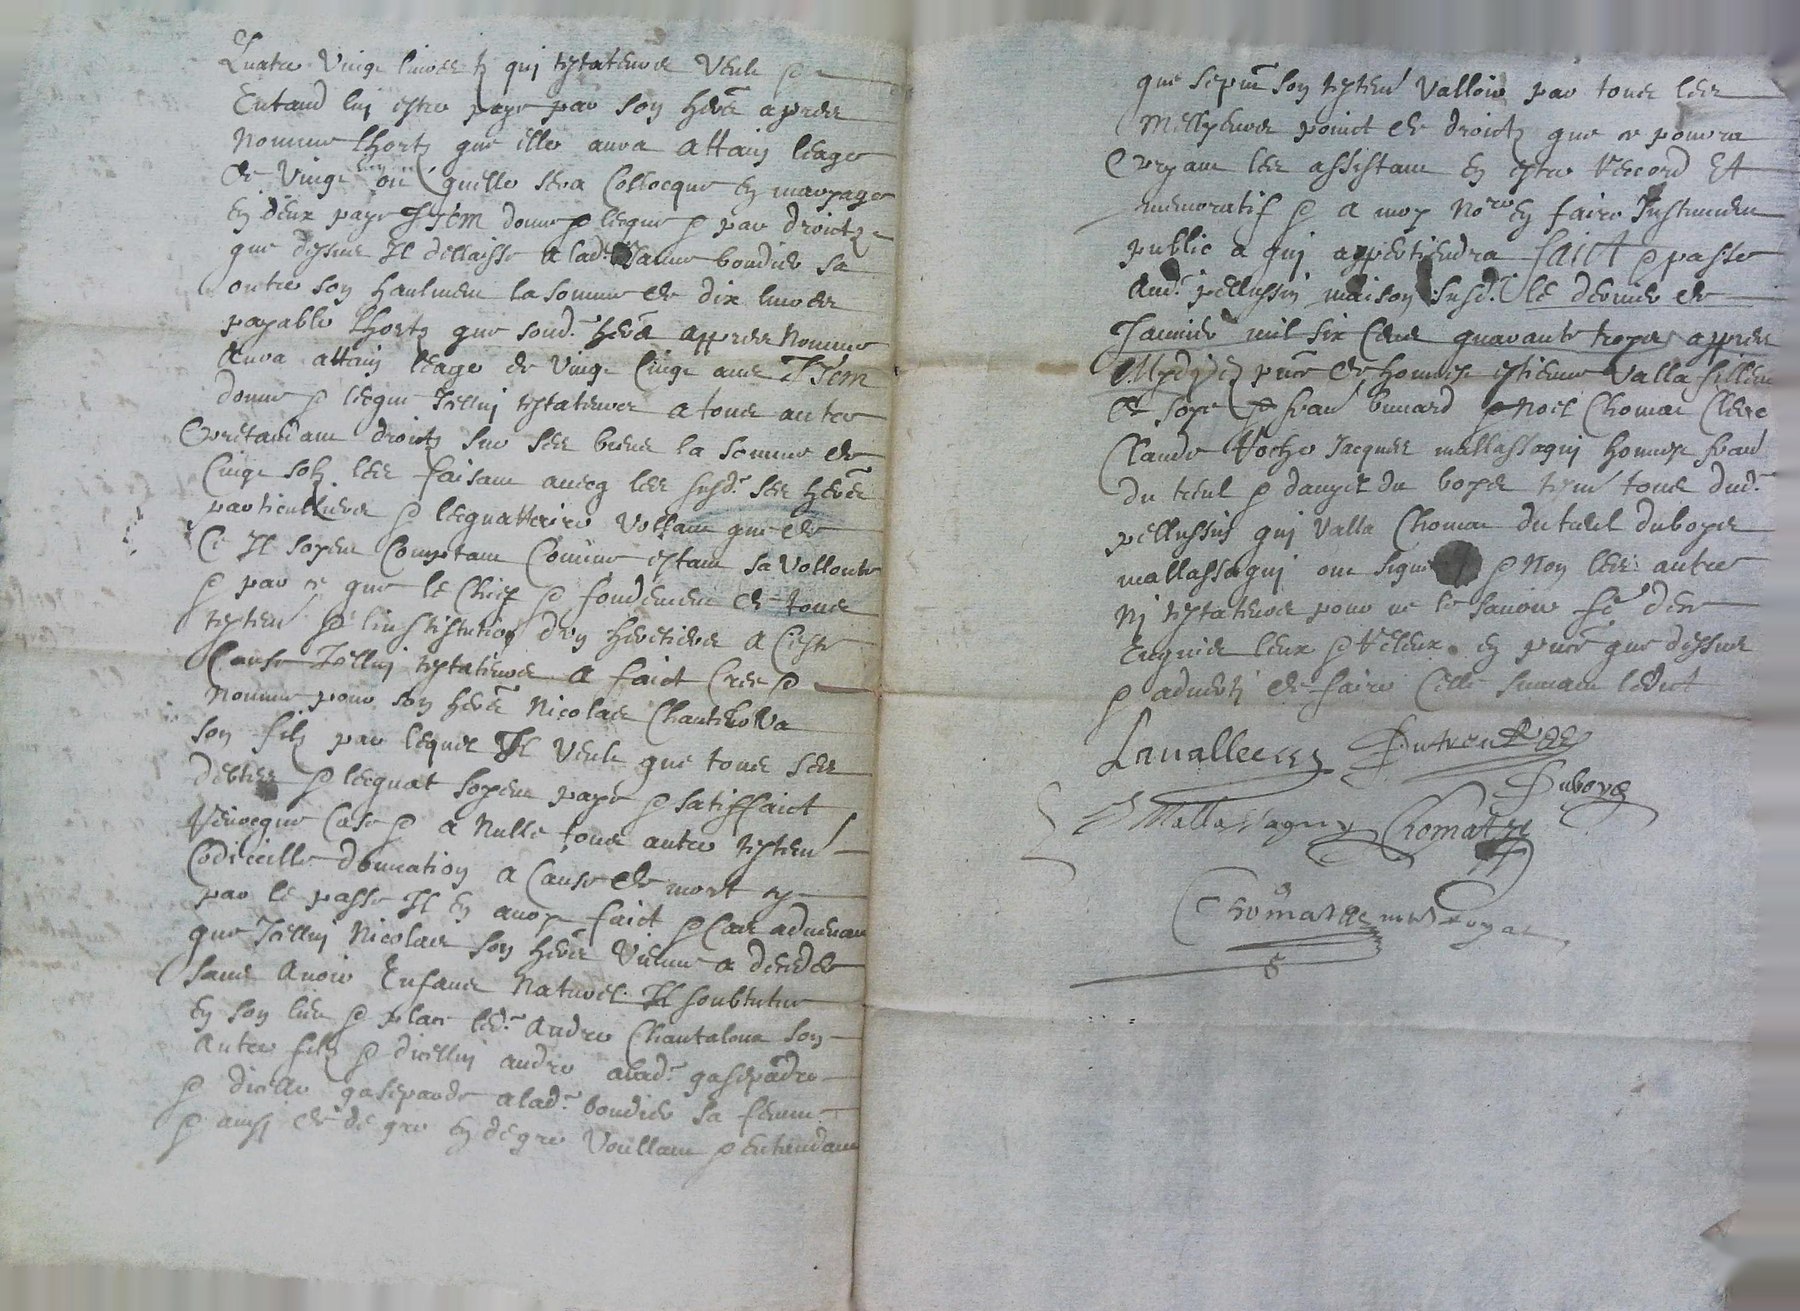 Quatre vingt livres tz quj testateur veult &
Entand luj estre payé par son herer apres
Nommé lhortz que elle aura attaint leage
de vingt ou quelle sera collocque en mariage
En deux paye Item donne & legue & par droictz
que dessus Il dellaisse a lad. boudier sa
outre son haulment la somme de dix livres
payable lhortz que soud. herer appres nommé
Aura attaint leage de vingt cinq ans Item
donne & legue Icelluj testateur a tous autre
pretandant droictz sur ses biens la somme de
Cinq solz les faisant avecq les susd. ses herers
particulliers & legattaire vollant que de
Ce Il soyent comptant comme estant sa vollonte
& par ce que le chief & fondement de tous
testent & linstitution dun heretier a ceste
Cause Icelluj testateur a faict cree &
Nomme pour son herer Nicolas Chantelova
son filz par lequel Il veult que tous ses
debtes & legat soyent paye & satisfaict
Revocque casse & a nulle tous autre testent
Codicille donnation a cause de mort sy
par le passe Il en avoy faict & cas advenant
que Icelluj Nicolas son herer vienne a deceder
sans avoir Enfans naturel Il soubtitue
En son lieu & place led. Andre Chantalova son
Autre filz & dicelluj andre a lad. gasparde
& dicelle gasparde a lad. boudier sa femme
& ainsj de degre En degre voullant & entendant
que se pnt son testent valloir par tous les
Meilleurs poinct de droictz que ce pourra
pryant les assistant en estre record Et
memoratif & a moy Nore en faire Instrument
public a quj appertiendra faict & passe
Aud. pellussin maison susd. le dernier de
Janvier mil six cens quarante troys appres
Mydy pnt de honneste estienne Valla
de & fran bunard & Noel Chomat Clerc
Claude Roche Jacques mallassagnj honneste fran
du treul & du boyes tesm tous dud.
pellussin quj Valla Chomat dutreul duboyes
mallassagnj ont signe & non les autre
Nj testateur pour ne le savoir de
Enquis leux & releux en pnt que dessus
& advertj de faire celle suivant ledict
Lavallee Dutreul
Duboys
J Mallassagny Chomat
Chomat nore royal